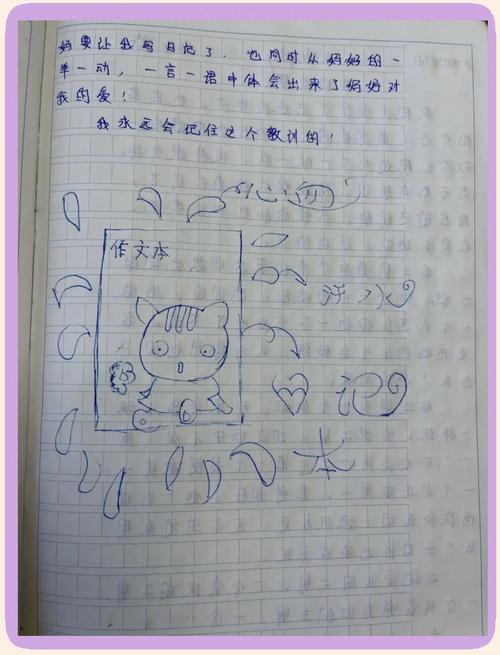 妈要让我写日记了．也同时从妈妈的一
举一动，一言一语中体会出来了妈妈对
我的爱！
我永远会记住这个教训的！
作文本
记
本